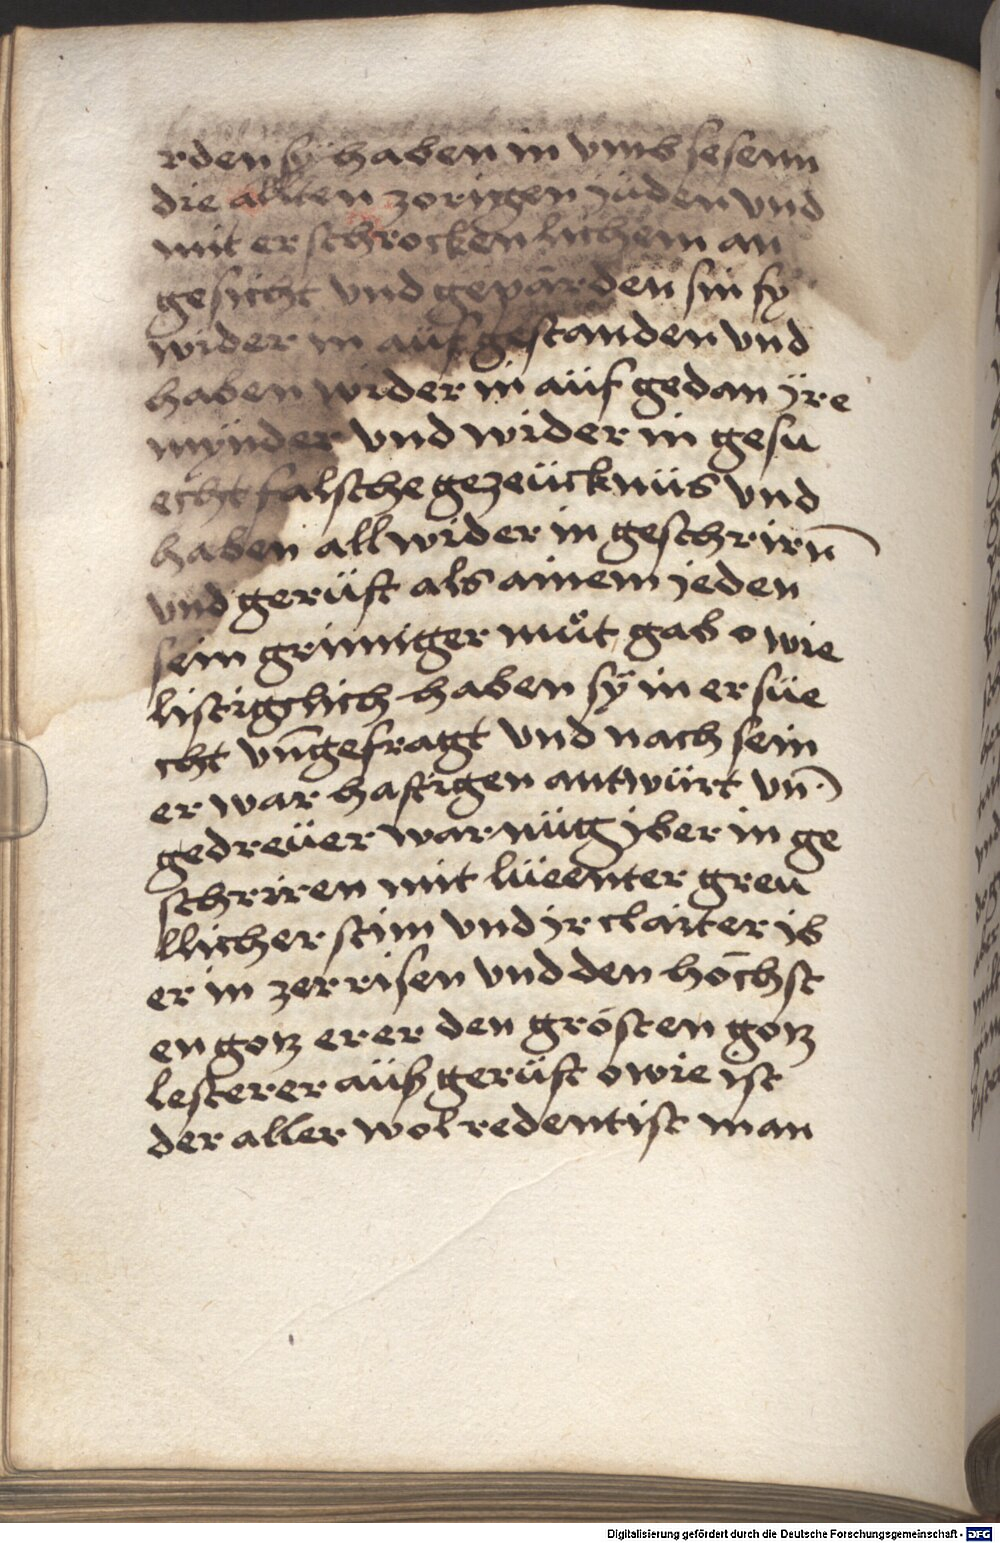 rden sÿ haben in vmb sesenn
die allten zornigen júden vnd
mit erschrockenlichem an
gesicht vnd gepärden sin sÿ
wider in aüf gestanden vnd
haben wider in aüf gedan ÿre
mÿnder vnd wider in gesu
echt falsche gezeücknüs vnd
haben all wider in geschrirn̄
vnd gerüft als ainem jeden
sein grimiger muͦt gab o wie
listigglich haben sÿ in ersüe
cht vn̄ gefragt vnd nach sein
er warhaftigen antwürt vn̄
gedreüer warnüg jber in ge
schriren mit lüeenter greu
llicher stim vnd jr claiter jb
er in zerrisen vnd den höchst
en gotz erer den grósten gotz
lesterer aüß gerüft o wie ist
der aller wolredentist man
Digitalisierung gefördert durch die Deutsche Forschungsgemeinschaft - DFG